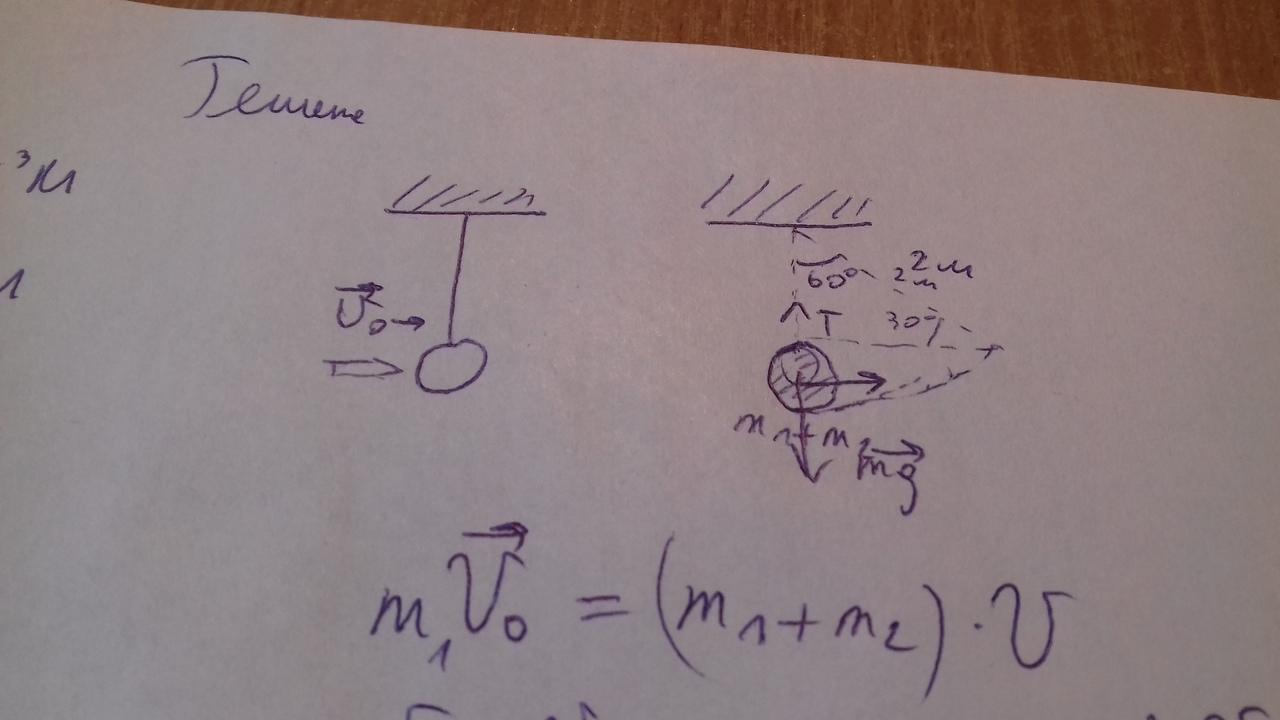 Решение
³м
60° 2м
2м
T 30°
V₀→
m₁+m₂
mg
m₁V₀ = (m₁+m₂)·V